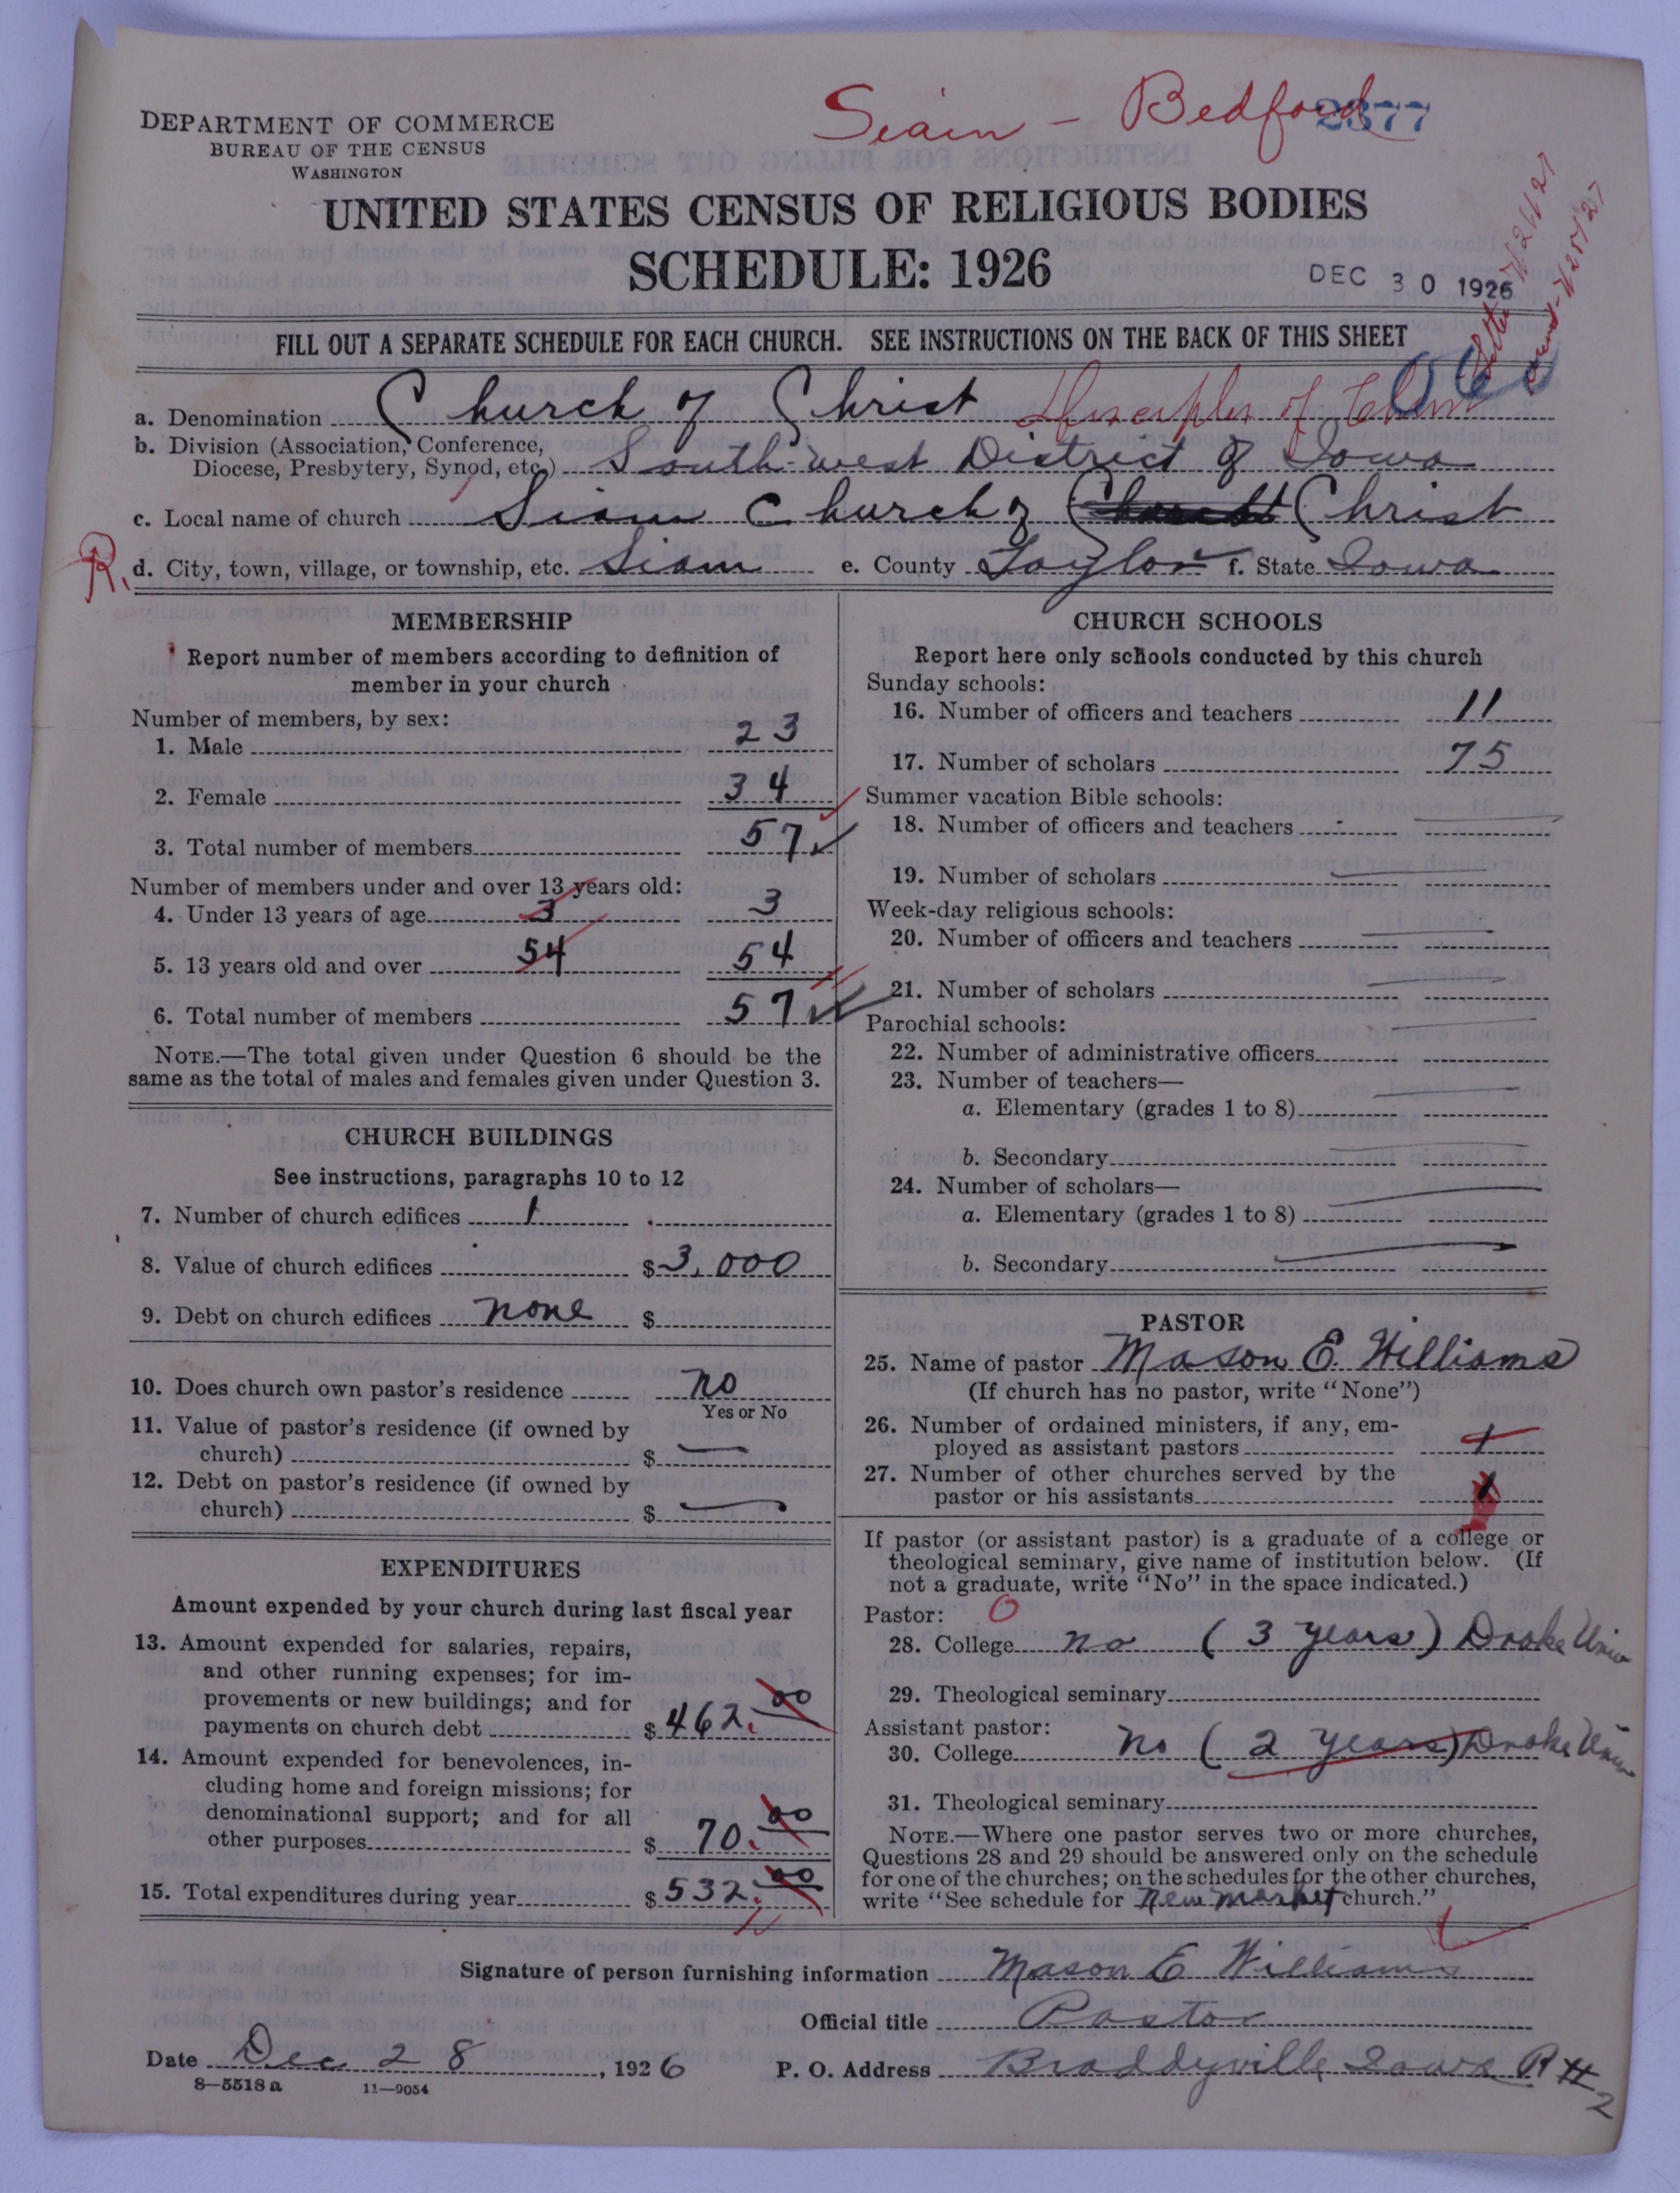 Siain - Bedford
2377
DEPARTMENT OF COMMERCE
BUREAU OF THE CENSUS
WASHINGTON
UNITED STATES CENSUS OF RELIGIOUS BODIES
SCHEDULE: 1926
DEC 30 1926
FILL OUT A SEPARATE SCHEDULE FOR EACH CHURCH. SEE INSTRUCTIONS ON THE BACK OF THIS SHEET
a. Denomination Church of Christ Disciples of Christ
b. Division (Association, Conference,
Diocese, Presbytery, Synod, etc.) South-west District of Iowa
c. Local name of church Siam Church of Christ
R. d. City, town, village, or township, etc. Siam e. County Taylor f. State Iowa
MEMBERSHIP
Report number of members according to definition of
member in your church
Number of members, by sex:
1. Male 23
2. Female 34
3. Total number of members 57
Number of members under and over 13 years old:
4. Under 13 years of age 3 3
5. 13 years old and over 54 54
6. Total number of members 57
NOTE.—The total given under Question 6 should be the
same as the total of males and females given under Question 3.
CHURCH BUILDINGS
See instructions, paragraphs 10 to 12
7. Number of church edifices 1
8. Value of church edifices $3,000
9. Debt on church edifices none $
10. Does church own pastor's residence no
Yes or No
11. Value of pastor's residence (if owned by
church) $ —
12. Debt on pastor's residence (if owned by
church) $ —
EXPENDITURES
Amount expended by your church during last fiscal year
13. Amount expended for salaries, repairs,
and other running expenses; for im-
provements or new buildings; and for
payments on church debt $462.00
14. Amount expended for benevolences, in-
cluding home and foreign missions; for
denominational support; and for all
other purposes $ 70.00
15. Total expenditures during year $532.00
CHURCH SCHOOLS
Report here only schools conducted by this church
Sunday schools:
16. Number of officers and teachers 11
17. Number of scholars 75
Summer vacation Bible schools:
18. Number of officers and teachers —
19. Number of scholars —
Week-day religious schools:
20. Number of officers and teachers —
21. Number of scholars —
Parochial schools:
22. Number of administrative officers —
23. Number of teachers—
a. Elementary (grades 1 to 8) —
b. Secondary —
24. Number of scholars—
a. Elementary (grades 1 to 8) —
b. Secondary —
PASTOR
25. Name of pastor Mason E. Williams
(If church has no pastor, write "None")
26. Number of ordained ministers, if any, em-
ployed as assistant pastors 1
27. Number of other churches served by the
pastor or his assistants 1
If pastor (or assistant pastor) is a graduate of a college or
theological seminary, give name of institution below. (If
not a graduate, write "No" in the space indicated.)
Pastor: O
28. College no (3 years) Drake Univ
29. Theological seminary
Assistant pastor:
30. College No (2 years) Drake Univ
31. Theological seminary
NOTE.—Where one pastor serves two or more churches,
Questions 28 and 29 should be answered only on the schedule
for one of the churches; on the schedules for the other churches,
write "See schedule for New Market church."
Signature of person furnishing information Mason E Williams
Official title Pastor
Date Dec 28, 1926 P. O. Address Braddyville Iowa R #2
8—5518 a 11—9054